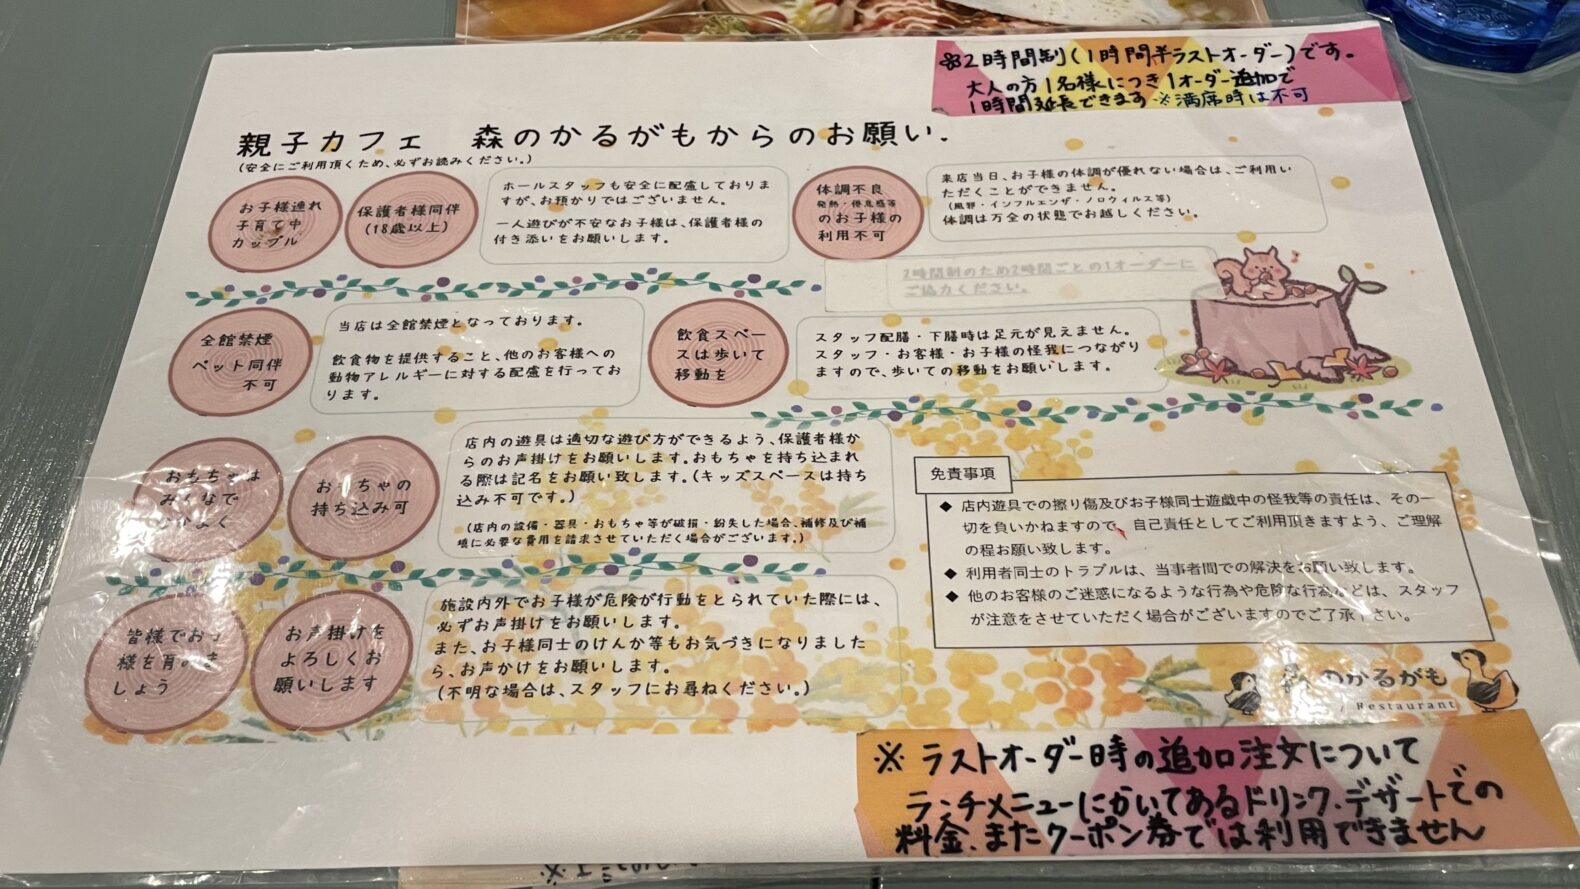 ※2時間制(1時間半ラストオーダー)です。
大人の方1名様につき1オーダー追加で
1時間延長できます ※満席時は不可
親子カフェ 森のかるがもからのお願い.
(安全にご利用頂くため、必ずお読みください。)
お子様連れ
子育て中
カップル
保護者様同伴
(18歳以上)
ホールスタッフも安全に配慮しておりま
すが、お預かりではございません。
一人遊びが不安なお子様は、保護者様の
付き添いをお願いします。
体調不良
発熱・倦怠感等
のお子様の
利用不可
来店当日、お子様の体調が優れない場合は、ご利用い
ただくことができません。
(風邪・インフルエンザ・ノロウィルス等)
体調は万全の状態でお越しください。
2時間制のため2時間ごとの1オーダーに
ご協力ください。
全館禁煙
ペット同伴
不可
当店は全館禁煙となっております。
飲食物を提供すること、他のお客様への
動物アレルギーに対する配慮を行ってお
ります。
飲食スペー
スは歩いて
移動を
スタッフ配膳・下膳時は足元が見えません。
スタッフ・お客様・お子様の怪我につながり
ますので、歩いての移動をお願いします。
おもちゃは
みんなで
なかよく
おもちゃの
持ち込み可
店内の遊具は適切な遊び方ができるよう、保護者様か
らのお声掛けをお願いします。おもちゃを持ち込まれ
る際は記名をお願い致します。(キッズスペースは持ち
込み不可です。)
(店内の設備・器具・おもちゃ等が破損・紛失した場合、補修及び補
填に必要な費用を請求させていただく場合がございます。)
皆様でお子
様を育みま
しょう
お声掛けを
よろしくお
願いします
施設内外でお子様が危険が行動をとられていた際には、
必ずお声掛けをお願いします。
また、お子様同士のけんか等もお気づきになりました
ら、お声かけをお願いします。
(不明な場合は、スタッフにお尋ねください。)
免責事項
◆ 店内遊具での擦り傷及びお子様同士遊戯中の怪我等の責任は、その一
切を負いかねますので、自己責任としてご利用頂きますよう、ご理解
の程お願い致します。
◆ 利用者同士のトラブルは、当事者間での解決をお願い致します。
◆ 他のお客様のご迷惑になるような行為や危険な行為などは、スタッフ
が注意をさせていただく場合がございますのでご了承下さい。
のかるがも
Restaurant
※ ラストオーダー時の追加注文について
ランチメニューにかいてあるドリンク、デザートでの
料金、またクーポン券では利用できません